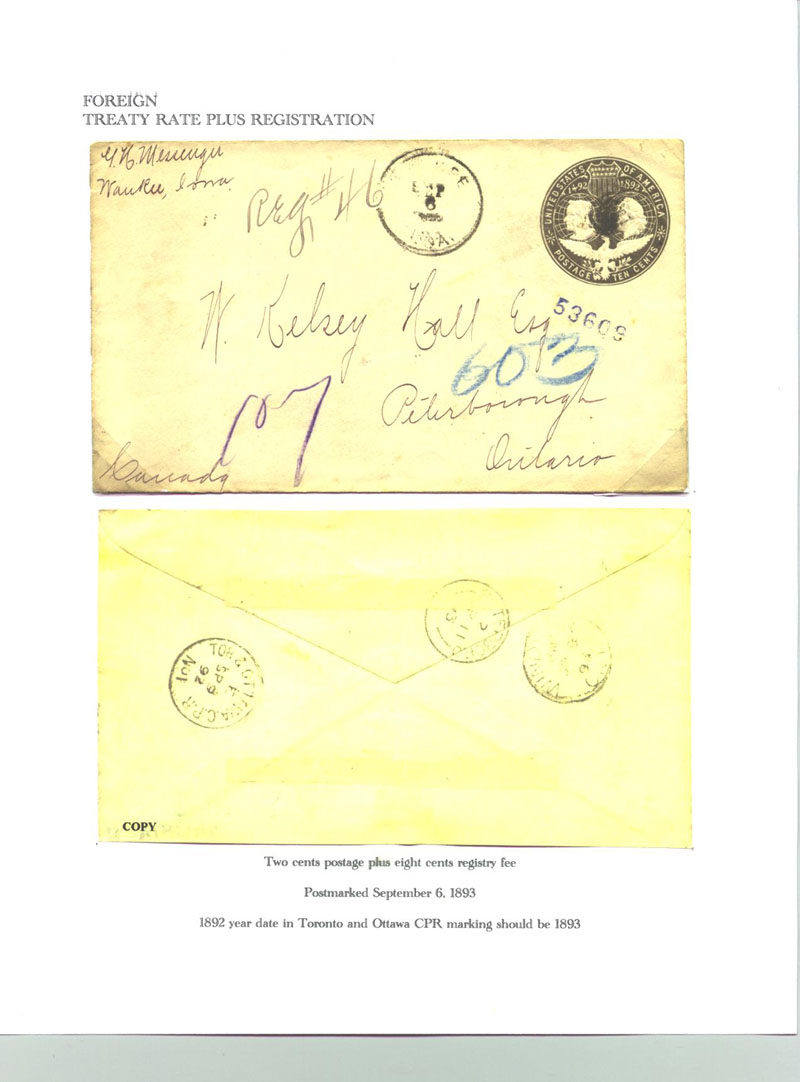 FOREIGN
TREATY RATE PLUS REGISTRATION
Messenger
Waukee, Iowa.
Reg # 46
SEP
6
UNITED STATES OF AMERICA
1492 1892
POSTAGE TEN CENTS
W. Kelsey Hall Esq
53609
603
Peterborough
Ontario
Canada
TOR & OTTAWA. C.P.R
No 1
SP 9
92
COPY
Two cents postage plus eight cents registry fee
Postmarked September 6, 1893
1892 year date in Toronto and Ottawa CPR marking should be 1893